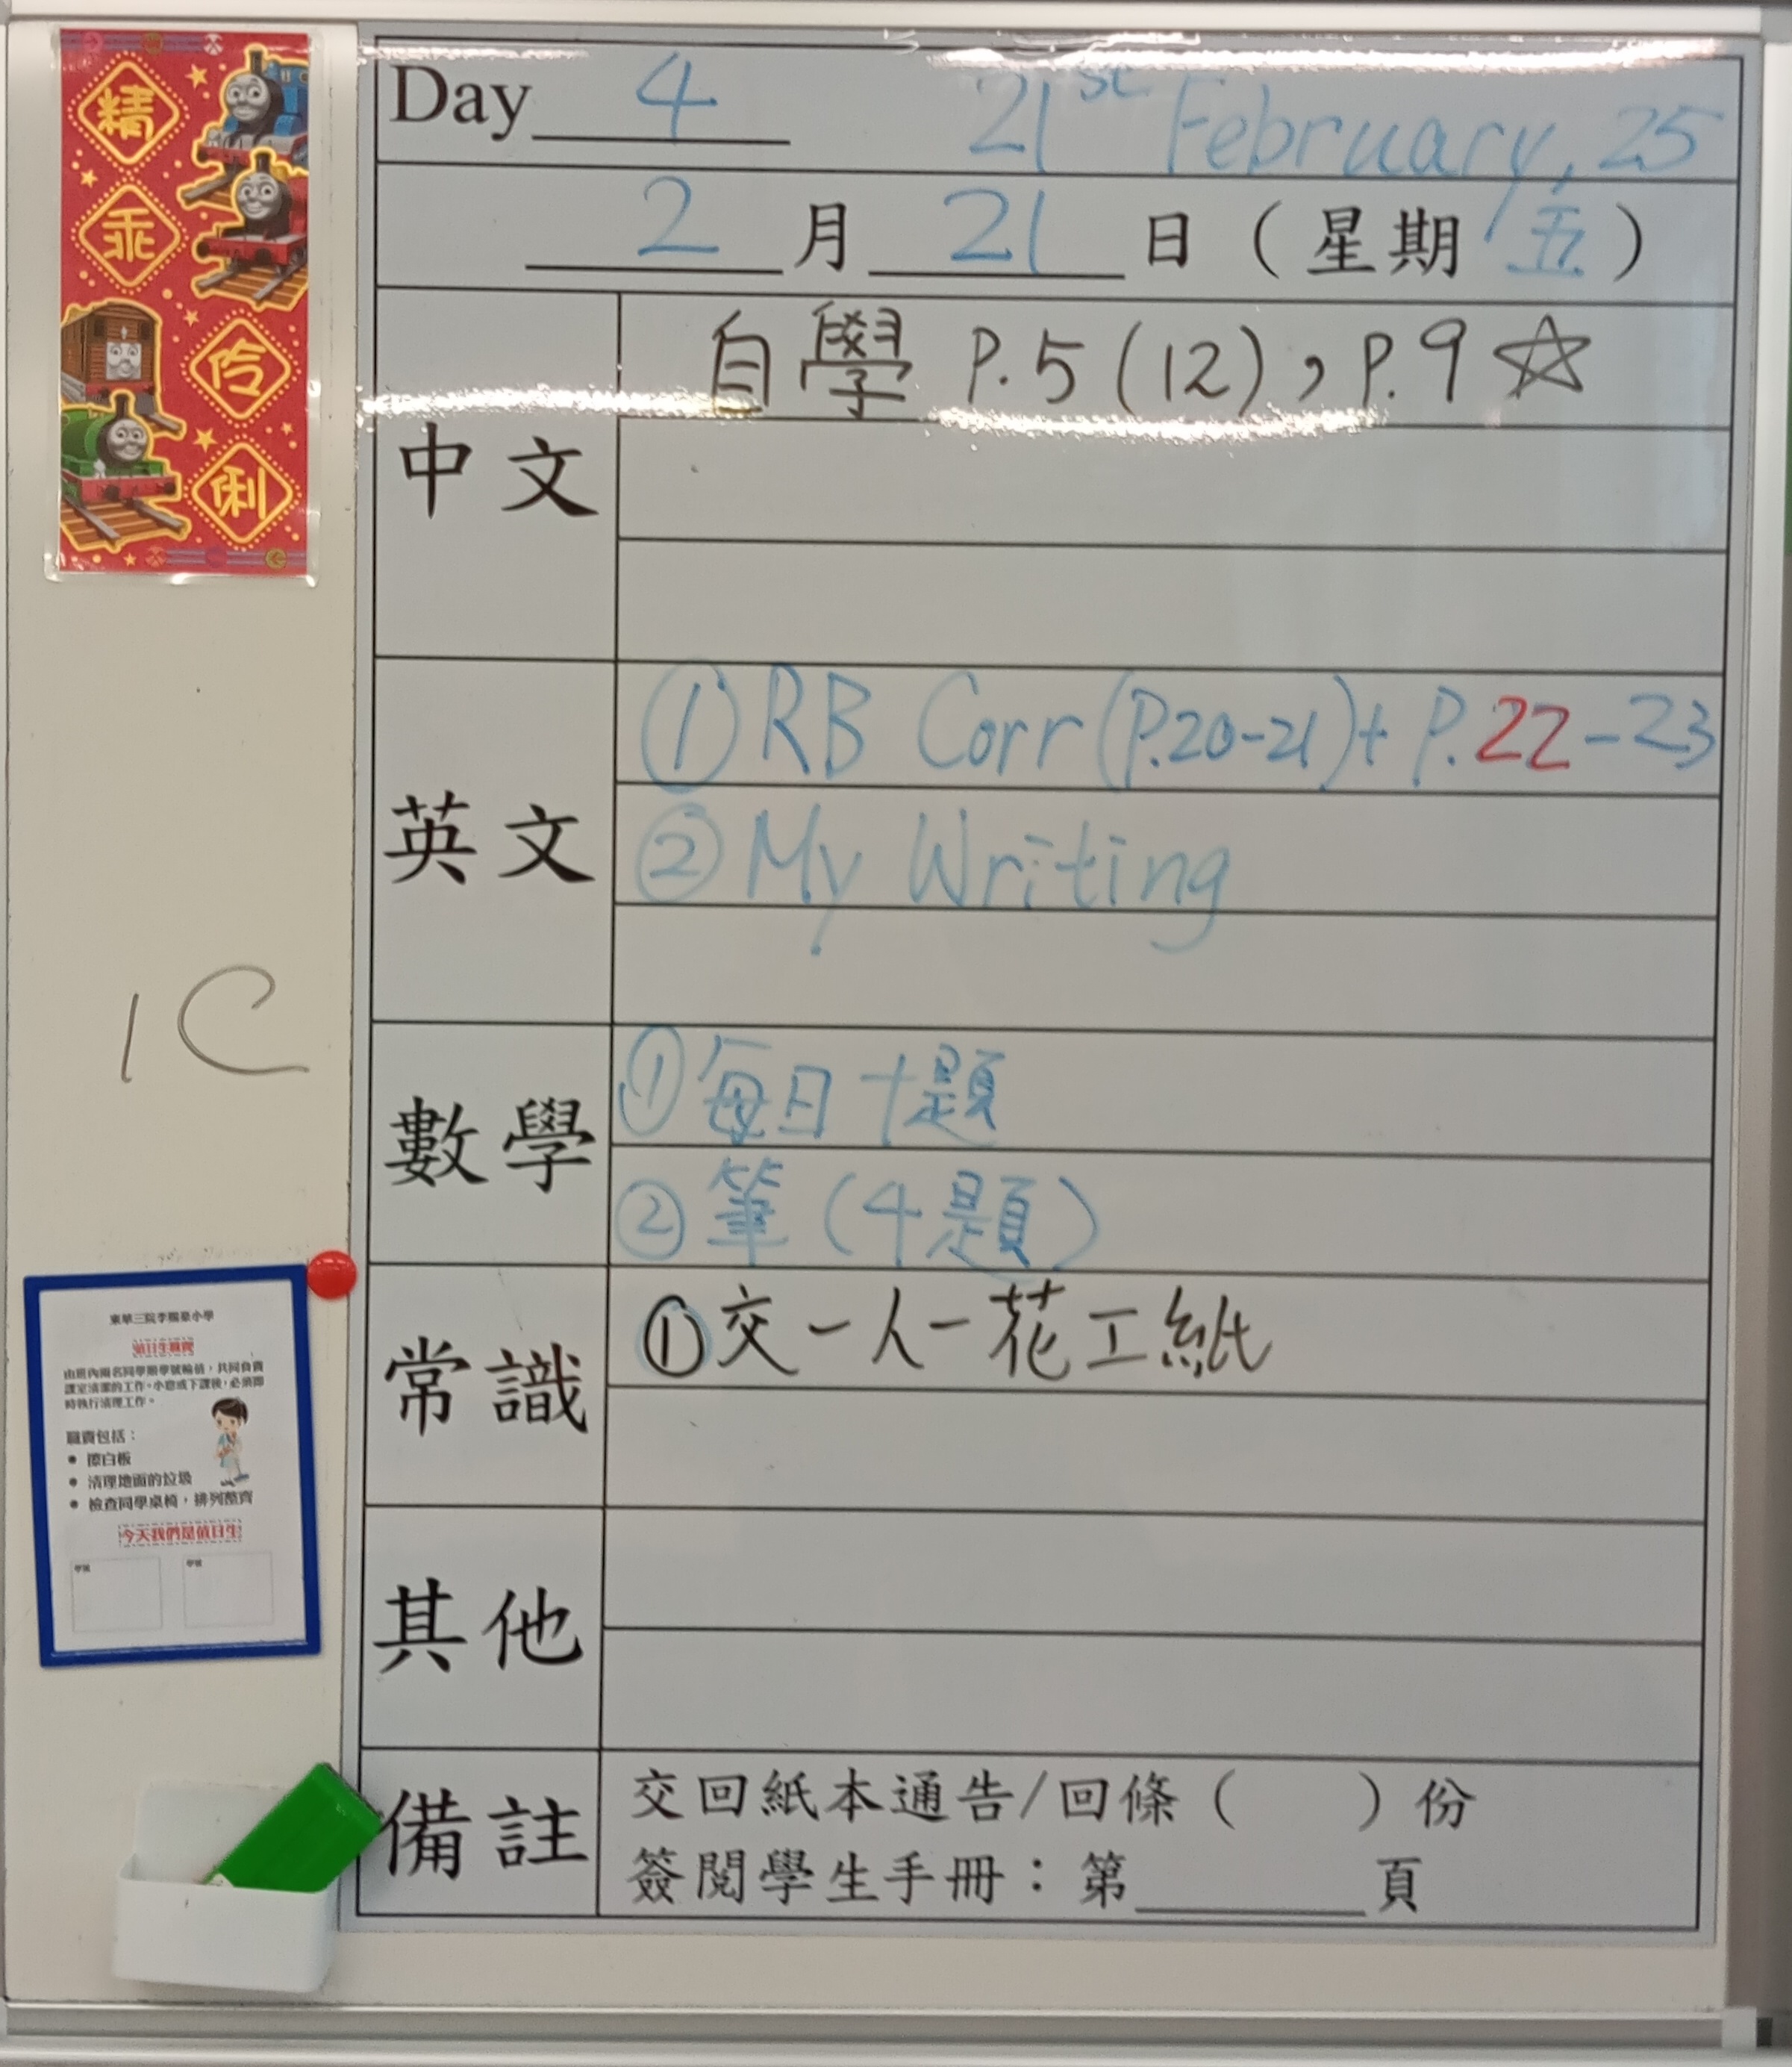 精
乖
伶
俐
Day 4 21st February, 25
2 月 21 日 ( 星期 五 )
中文
自學 P.5 (12) , P.9 ☆
英文
① RB Corr (P.20-21) + P.22-23
② My Writing
1C
數學
① 每日十題
② 筆 (4題)
常識
① 交一人一花工紙
其他
備註
交回紙本通告/回條 ( ) 份
簽閱學生手冊：第______頁
值日生職責
由班內兩名同學順學號輪值，共同負責
課室清潔的工作。小息或下課後，必須即
時執行清理工作。
職責包括：
• 擦白板
• 清理地面的垃圾
• 檢查同學桌椅，排列整齊
今天我們是值日生
學號 學號